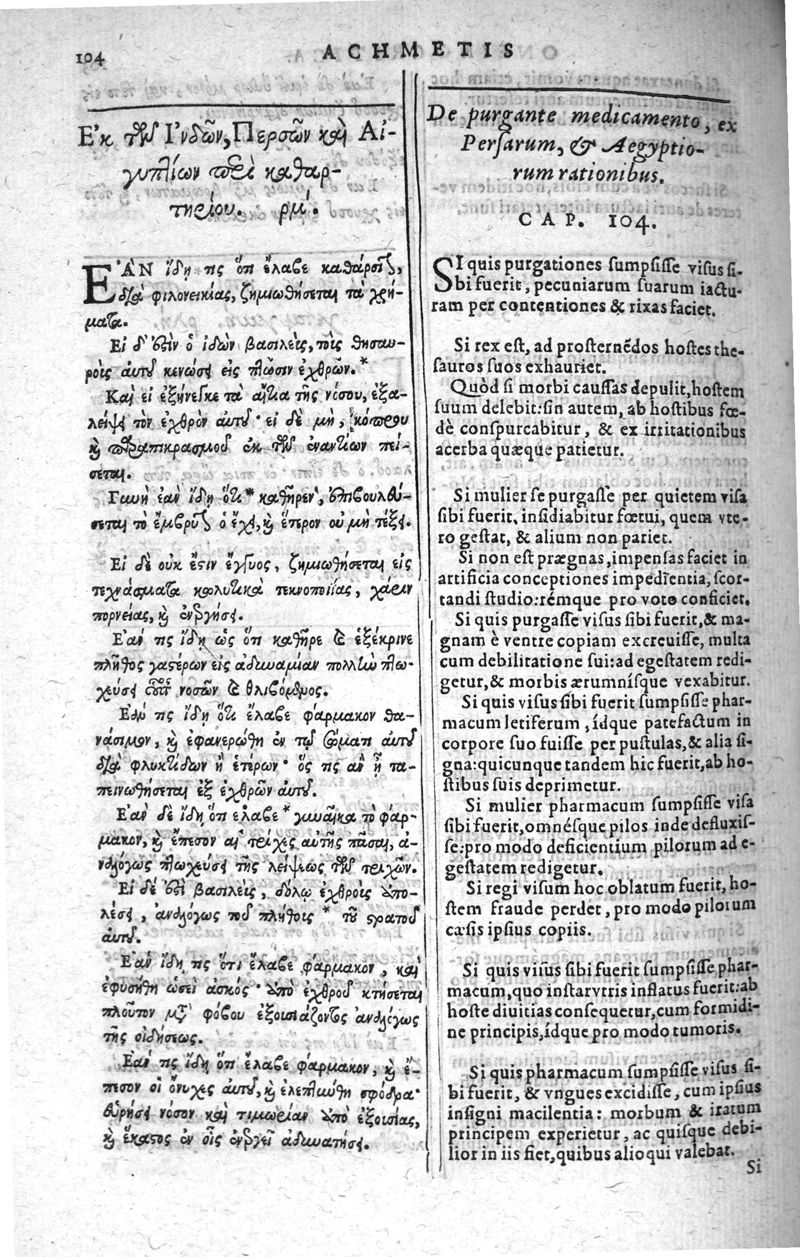 104
ACHMETIS
Ἐκ τῶν Ἰνδῶν, Περσῶν καὶ Αἰ-
γυπτίων περὶ καθαρ-
τηρίου. ρμ΄.
ΕΑΝ ἴδῃ τις ὅτι ἔλαβε καθάρσιον,
διὰ φιλονεικίας, ζημιωθήσεται τὰ χρή-
ματα.
Εἰ δ' ἔστιν ὁ ἰδὼν βασιλεὺς, τοὺς θησαυ-
ροὺς αὐτοῦ κενώσει εἰς πτῶσιν ἐχθρῶν.*
Καὶ εἰ ἐξήνεγκε τὰ αἴτια τῆς νόσου, ἐξα-
λείψει τὸν ἐχθρὸν αὐτοῦ· εἰ δὲ μὴ, κόπρου
καὶ παραπικρασμοῦ ἐκ τῶν ἐναντίων πεί-
σεται.
Γυνὴ ἐὰν ἴδῃ ὅτι * καθῆρεν, ἐπιβουλεύ-
σεται τὸ ἔμβρυον ὃ ἔχει, καὶ ἕτερον οὐ μὴ τέξει.
Εἰ δὲ οὐκ ἔστιν ἔγγυος, ζημιωθήσεται εἰς
τεχνάσματα κωλυτικὰ τεκνοποιΐας, χάριν
πορνείας, καὶ ἐνεργήσει.
Ἐάν τις ἴδῃ ὡς ὅτι καθῆρε καὶ ἐξέκρινε
πλῆθος γαστέρων εἰς ἀδυναμίαν πολλὴν πτω-
χεύσει σὺν νόσων καὶ θλιβόμενος.
Ἐάν τις ἴδῃ ὅτι ἔλαβε φάρμακον θα-
νάσιμον, καὶ ἐφανερώθη ἐν τῷ σώματι αὐτοῦ
διὰ φλυκτίδων ἢ ἑτέρων· ὅς τις ἂν ᾖ τα-
πεινωθήσεται ἐξ ἐχθρῶν αὐτοῦ.
Ἐὰν δὲ ἴδῃ ὅτι ἔλαβε * γυναῖκα τὸ φάρ-
μακον, καὶ ἔπεσον αἱ τρίχες αὐτῆς πᾶσαι, ἀ-
ναλόγως πτωχεύσει τῆς λείψεως τῶν τριχῶν.
Εἰ δέ ἐστι βασιλεὺς, δόλῳ ἐχθροὺς ἀπο-
λέσει, ἀναλόγως τοῦ πλήθους * τοῦ στρατοῦ
αὐτοῦ.
Ἐάν τις ἴδῃ τις ὅτι ἔλαβε φάρμακον, καὶ
ἐφυσήθη ὡσεὶ ἀσκὸς· ἀπὸ ἐχθροῦ κτήσεται
πλοῦτον μετὰ φόβου ἐξουσιάζοντος ἀναλόγως
τῆς οἰδήσεως.
Ἐάν τις ἴδῃ ὅτι ἔλαβε φάρμακον, καὶ ἔ-
πεσον οἱ ὄνυχες αὐτοῦ, καὶ ἐλεπτύνθη σφόδρα·
εὑρήσει νόσον καὶ τιμωρίαν ἀπὸ ἐξουσίας,
καὶ ἕκαστος ἐν οἷς ἐνεργεῖ ἀδυνατήσει.
De purgante medicamento, ex
Persarum, & Aegyptio-
rum rationibus.
CAP. 104.
SI quis purgationes sumpsisse visus si-
bi fuerit, pecuniarum suarum iactu-
ram per contentiones & rixas faciet.
Si rex est, ad prosternēdos hostes the-
sauros suos exhauriet.
Quòd si morbi caussas depulit, hostem
suum delebit: sin autem, ab hostibus fœ-
dè conspurcabitur, & ex irritationibus
acerba quæque patietur.
Si mulier se purgasse per quietem visa
sibi fuerit, insidiabitur fœtui, quem vte-
ro gestat, & alium non pariet.
Si non est prægnas, impensas faciet in
artificia conceptiones impediētia, scor-
tandi studio: rémque pro voto conficiet.
Si quis purgasse visus sibi fuerit, & ma-
gnam è ventre copiam excreuisse, multa
cum debilitatione sui: ad egestatem redi-
getur, & morbis ærumnísque vexabitur.
Si quis visus sibi fuerit sumpsisse phar-
macum letiferum, ídque patefactum in
corpore suo fuisse per pustulas, & alia si-
gna: quicunque tandem hic fuerit, ab ho-
stibus suis deprimetur.
Si mulier pharmacum sumpsisse visa
sibi fuerit, omnésque pilos inde defluxis-
se: pro modo deficientium pilorum ad e-
gestatem redigetur.
Si regi visum hoc oblatum fuerit, ho-
stem fraude perdet, pro modo pilorum
cæsis ipsius copiis.
Si quis visus sibi fuerit sumpsisse phar-
macum, quo instar vtris inflatus fuerit: ab
hoste diuitias consequetur, cum formidi-
ne principis, ídque pro modo tumoris.
Si quis pharmacum sumpsisse visus si-
bi fuerit, & vngues excidisse, cum ipsius
insigni macilentia: morbum & iratum
principem experietur, ac quisque debi-
lior in iis fiet, quibus alioqui valebat.
Si